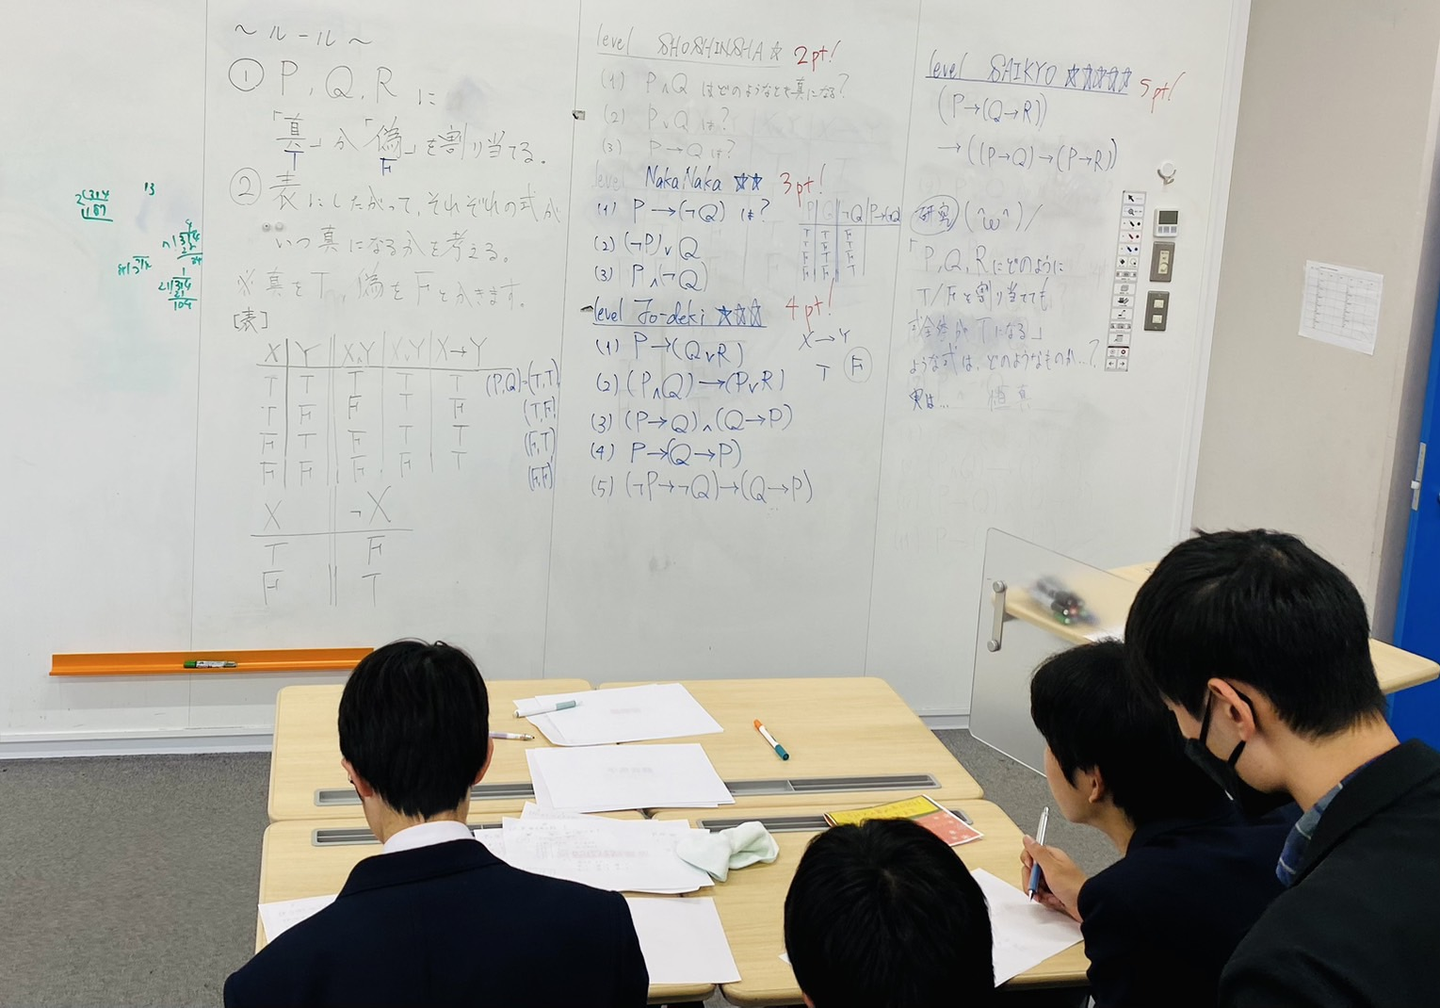 ～ルール～
① P, Q, R に
「真」か「偽」を割り当てる。
T F
② 表にしたがって、それぞれの式が
いつ真になるかを考える。
※真をT、偽をFとかきます。
[表]
X Y X∧Y X∨Y X→Y
T T T T T
T F F T F
F T F T T
F F F F T
(P,Q)=(T,T)
(T,F)
(F,T)
(F,F)
X ¬X
T F
F T
level SHOSHINSHA ☆ 2pt!
(1) P∧Q はどのようなとき真になる?
(2) P∨Q は?
(3) P→Q は?
level NakaNaka ★★ 3pt!
(1) P→(¬Q) は?
(2) (¬P)∨Q
(3) P∧(¬Q)
P Q ¬Q P→(¬Q)
T T F
T F T
F T F
F F T
level Jo-deki ☆☆☆ 4pt!
(1) P→(Q∨R)
(2) (P∧Q)→(P∨R)
(3) (P→Q)∧(Q→P)
(4) P→(Q→P)
(5) (¬P→¬Q)→(Q→P)
X→Y
T F
level SAIKYO ☆☆☆☆☆ 5pt!
(P→(Q→R))
→((P→Q)→(P→R))
研究 (^ω^)/
「P,Q,Rにどのように
T/Fを割り当てても
式全体がTになる」
ような式は、どのようなものか…?
実は…
13